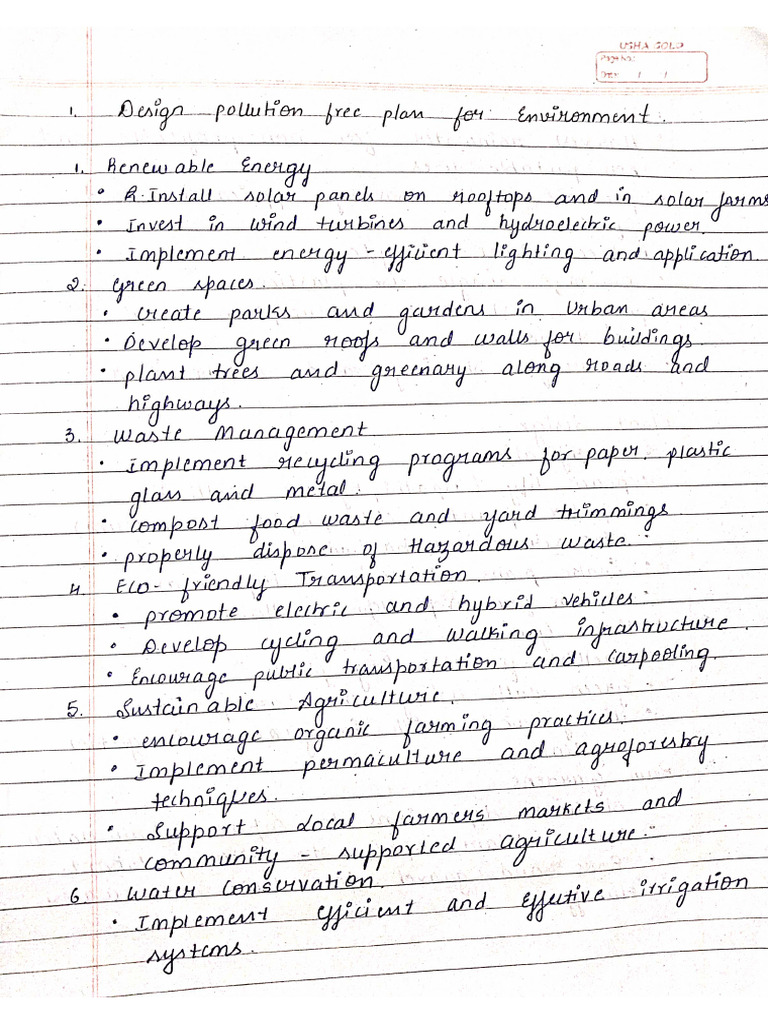 USHA GOLD
Page No.:
Date: / /
1. Design pollution free plan for Environment.
1. Renewable Energy
• R. Install solar panels on rooftops and in solar farms
• Invest in wind turbines and hydroelectric power.
• Implement energy-efficient lighting and application.
2. Green spaces.
• create parks and gardens in Urban areas
• Develop green roofs and walls for buildings
• plant trees and greenary along roads and
highways.
3. Waste Management
• implement recycling programs for paper, plastic
glass and metal.
• compost food waste and yard trimmings
• properly dispose of Hazardous waste.
4. Eco-friendly Transportation.
• promote electric and hybrid vehicles.
• Develop cycling and walking infrastructure.
• Encourage public transportation and carpooling.
5. Sustainable Agriculture.
• encourage organic farming practices.
• Implement permaculture and agroforestry
techniques.
• Support Local farmers markets and
community-supported agriculture.
6. Water conservation.
• Implement efficient and effective irrigation
systems.